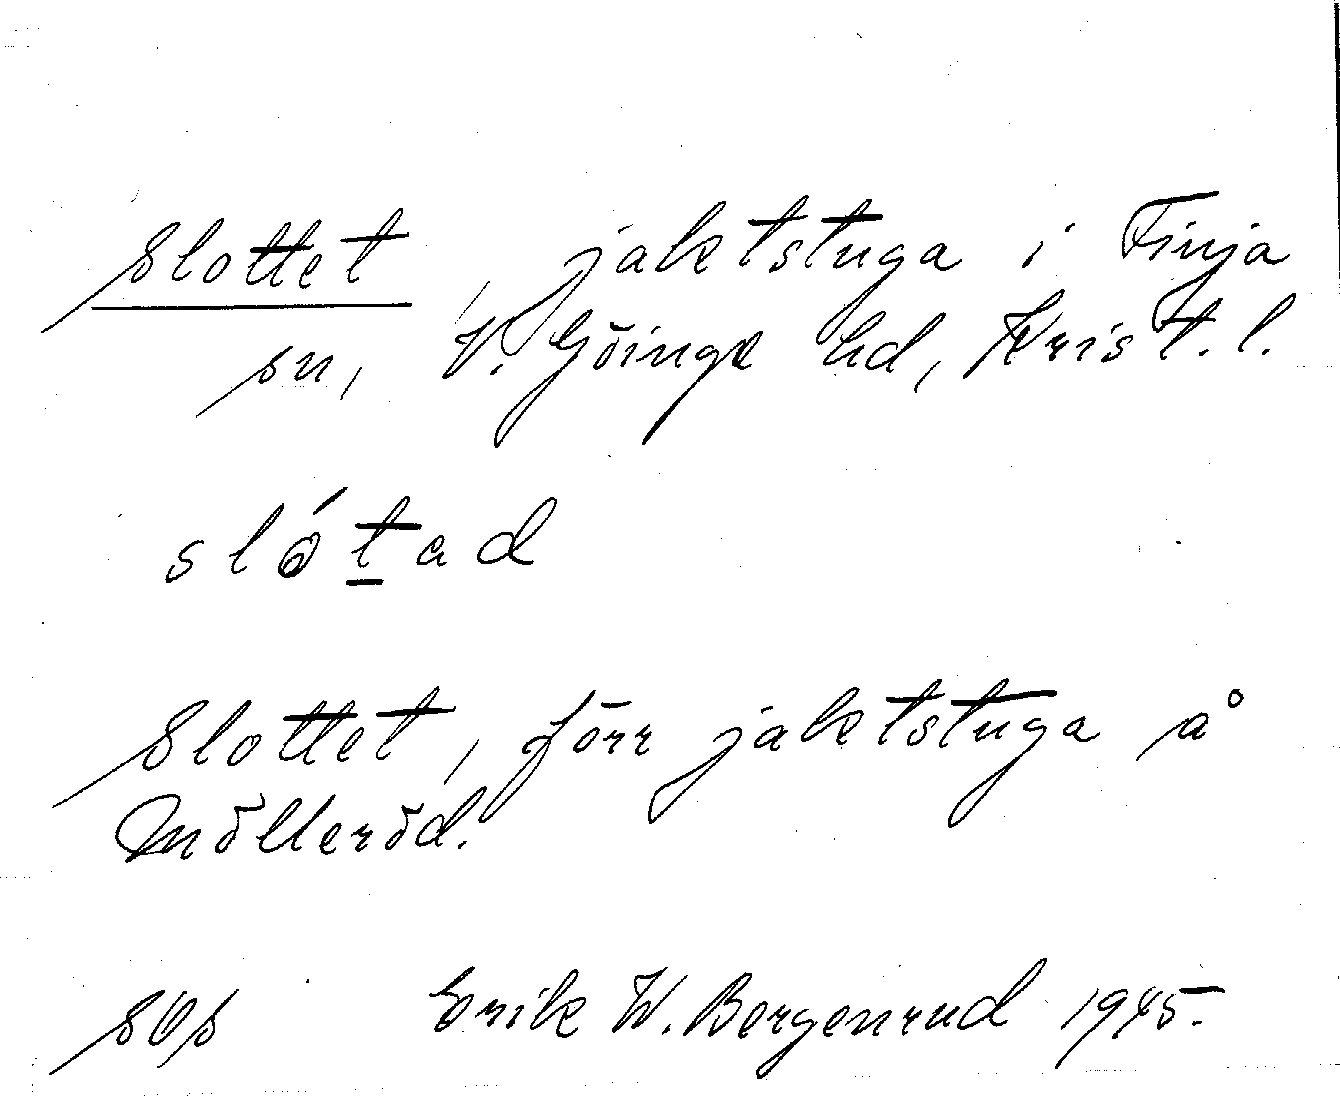 Slottet, jaktstuga i Finja
sn, V. Göinge hd, Krist. l.
slótad
Slottet, förr jaktstuga på
Mölleröd.
Erik W. Bergenrud 1945.